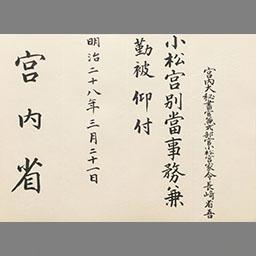 宮内大秘書官兼式部官小松宮家令長崎省吾
小松宮別當事務兼
勤被仰付
明治二十八年三月二十一日
宮内省